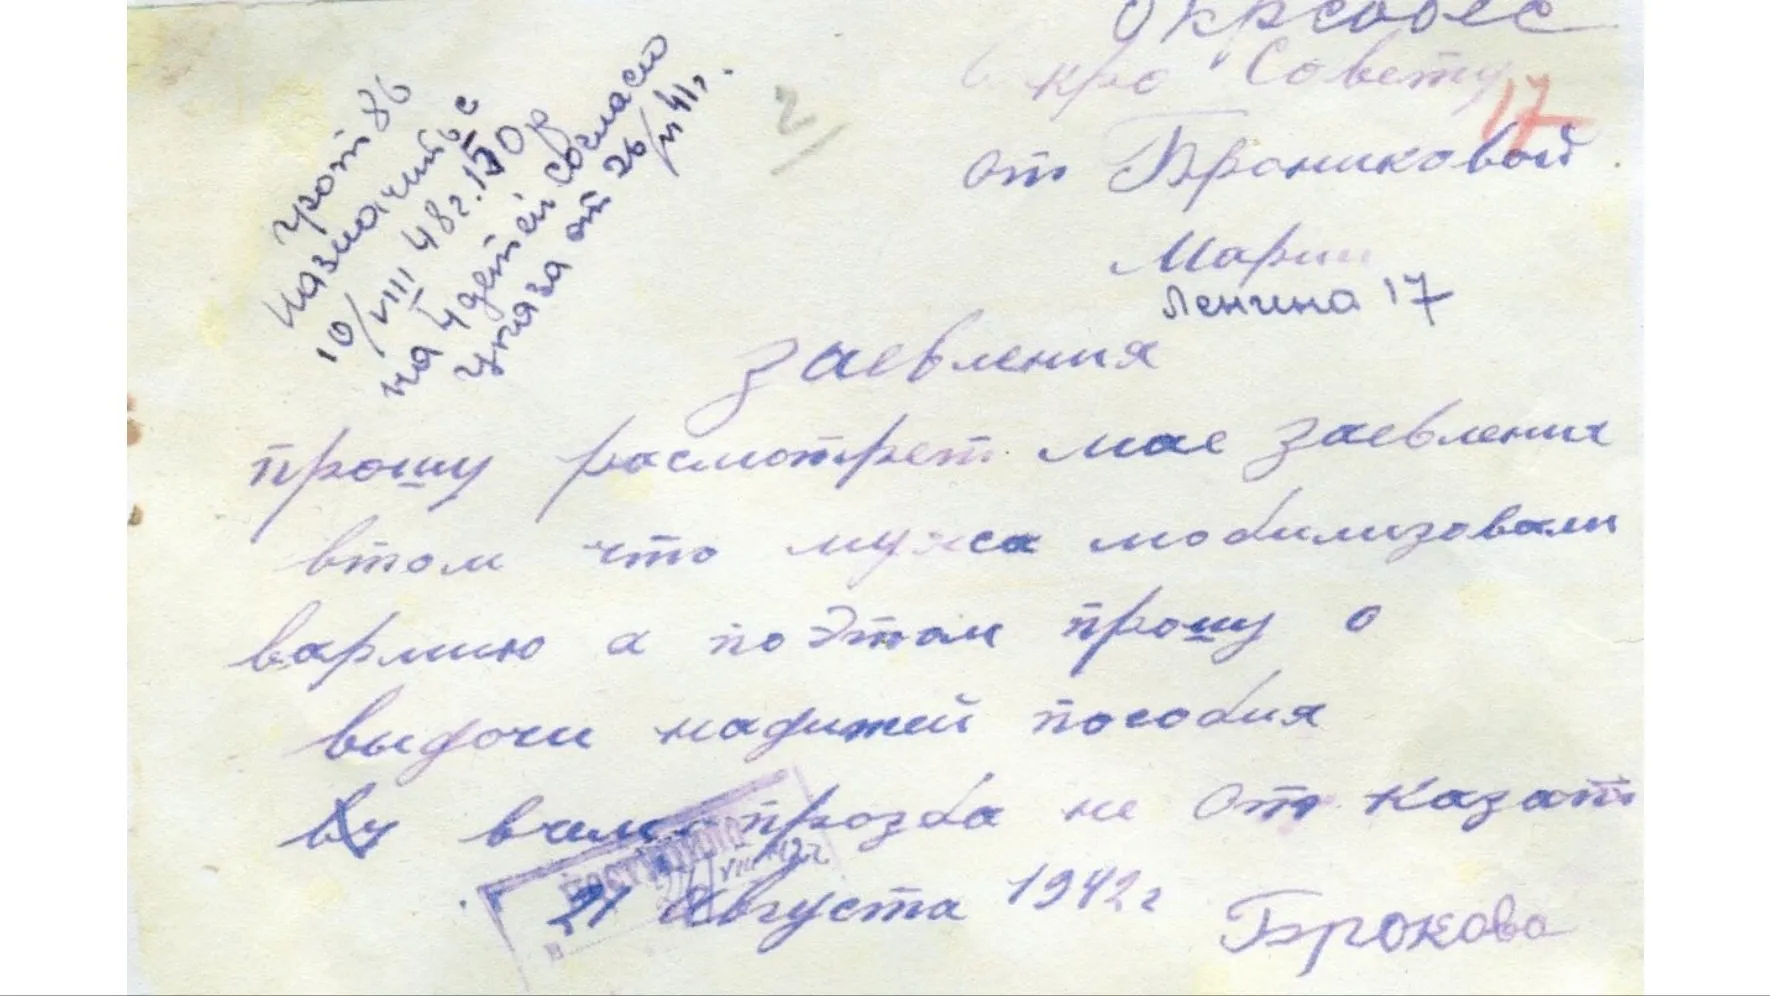 Окрсобес
в кро Совету
17
от Брониковой
Марии
Ленина 17
2
прот 86
Назначить с
10/VIII 48г. 150 р
на 4 детей согласно
указа от 26/VI 41г.
Заевления
прошу расмотрет мае заевления
втом что мужа мобилизовали
вармию а поэтом прошу о
выдочи надижей пособия
вчем прозба не отказат
21 Августа 1942г
Брокова